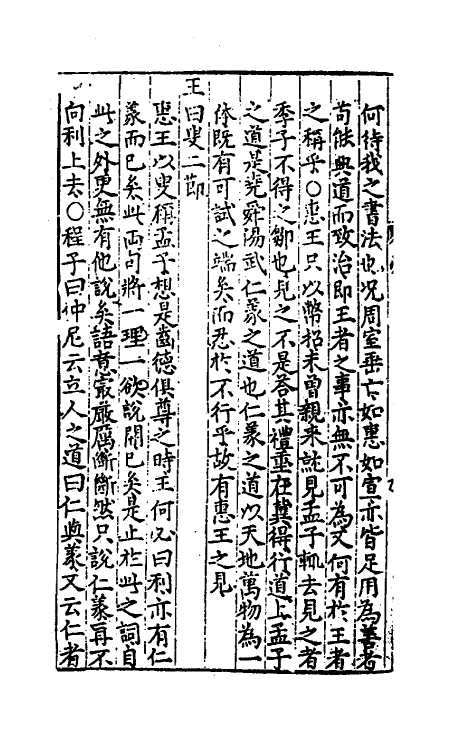 何待我之書法也况周室垂亡如惠如宣亦皆足用為善者
苟能與道而致治即王者之事亦無不可為又何有於王者
之稱乎○惠王只以幣招未曾親来就見孟子輒去見之者
季子不得之鄒也見之不是答其禮重在兾得行道上孟子
之道是堯舜湯武仁義之道也仁義之道以天地萬物為一
体既有可試之端矣而忍於不行乎故有惠王之見
王曰叟二節
惠王以叟稱孟子想是齒德俱尊之時王何必曰利亦有仁
義而已矣此兩句將一理一欲說開已矣是止於此之詞自
此之外更無有他說矣語意嚴厲斷斷然只說仁義再不
向利上去○程子曰仲尼云立人之道曰仁與義又云仁者